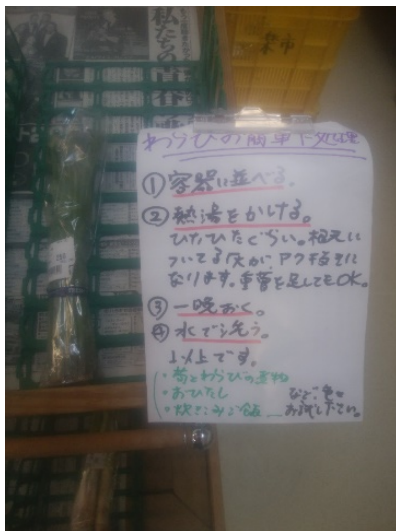 私たちの青春
わらびの簡単下処理
① 容器に並べる。
② 熱湯をかける。
ひたひたぐらい。根元に
ついてる灰が、アク抜きに
なります。重曹を足してもOK。
③ 一晩おく。
④ 水で洗う。
以上です。
・筍とわらびの煮物
・おひたし
・炊きこみご飯 など、色々
お試し下さい。